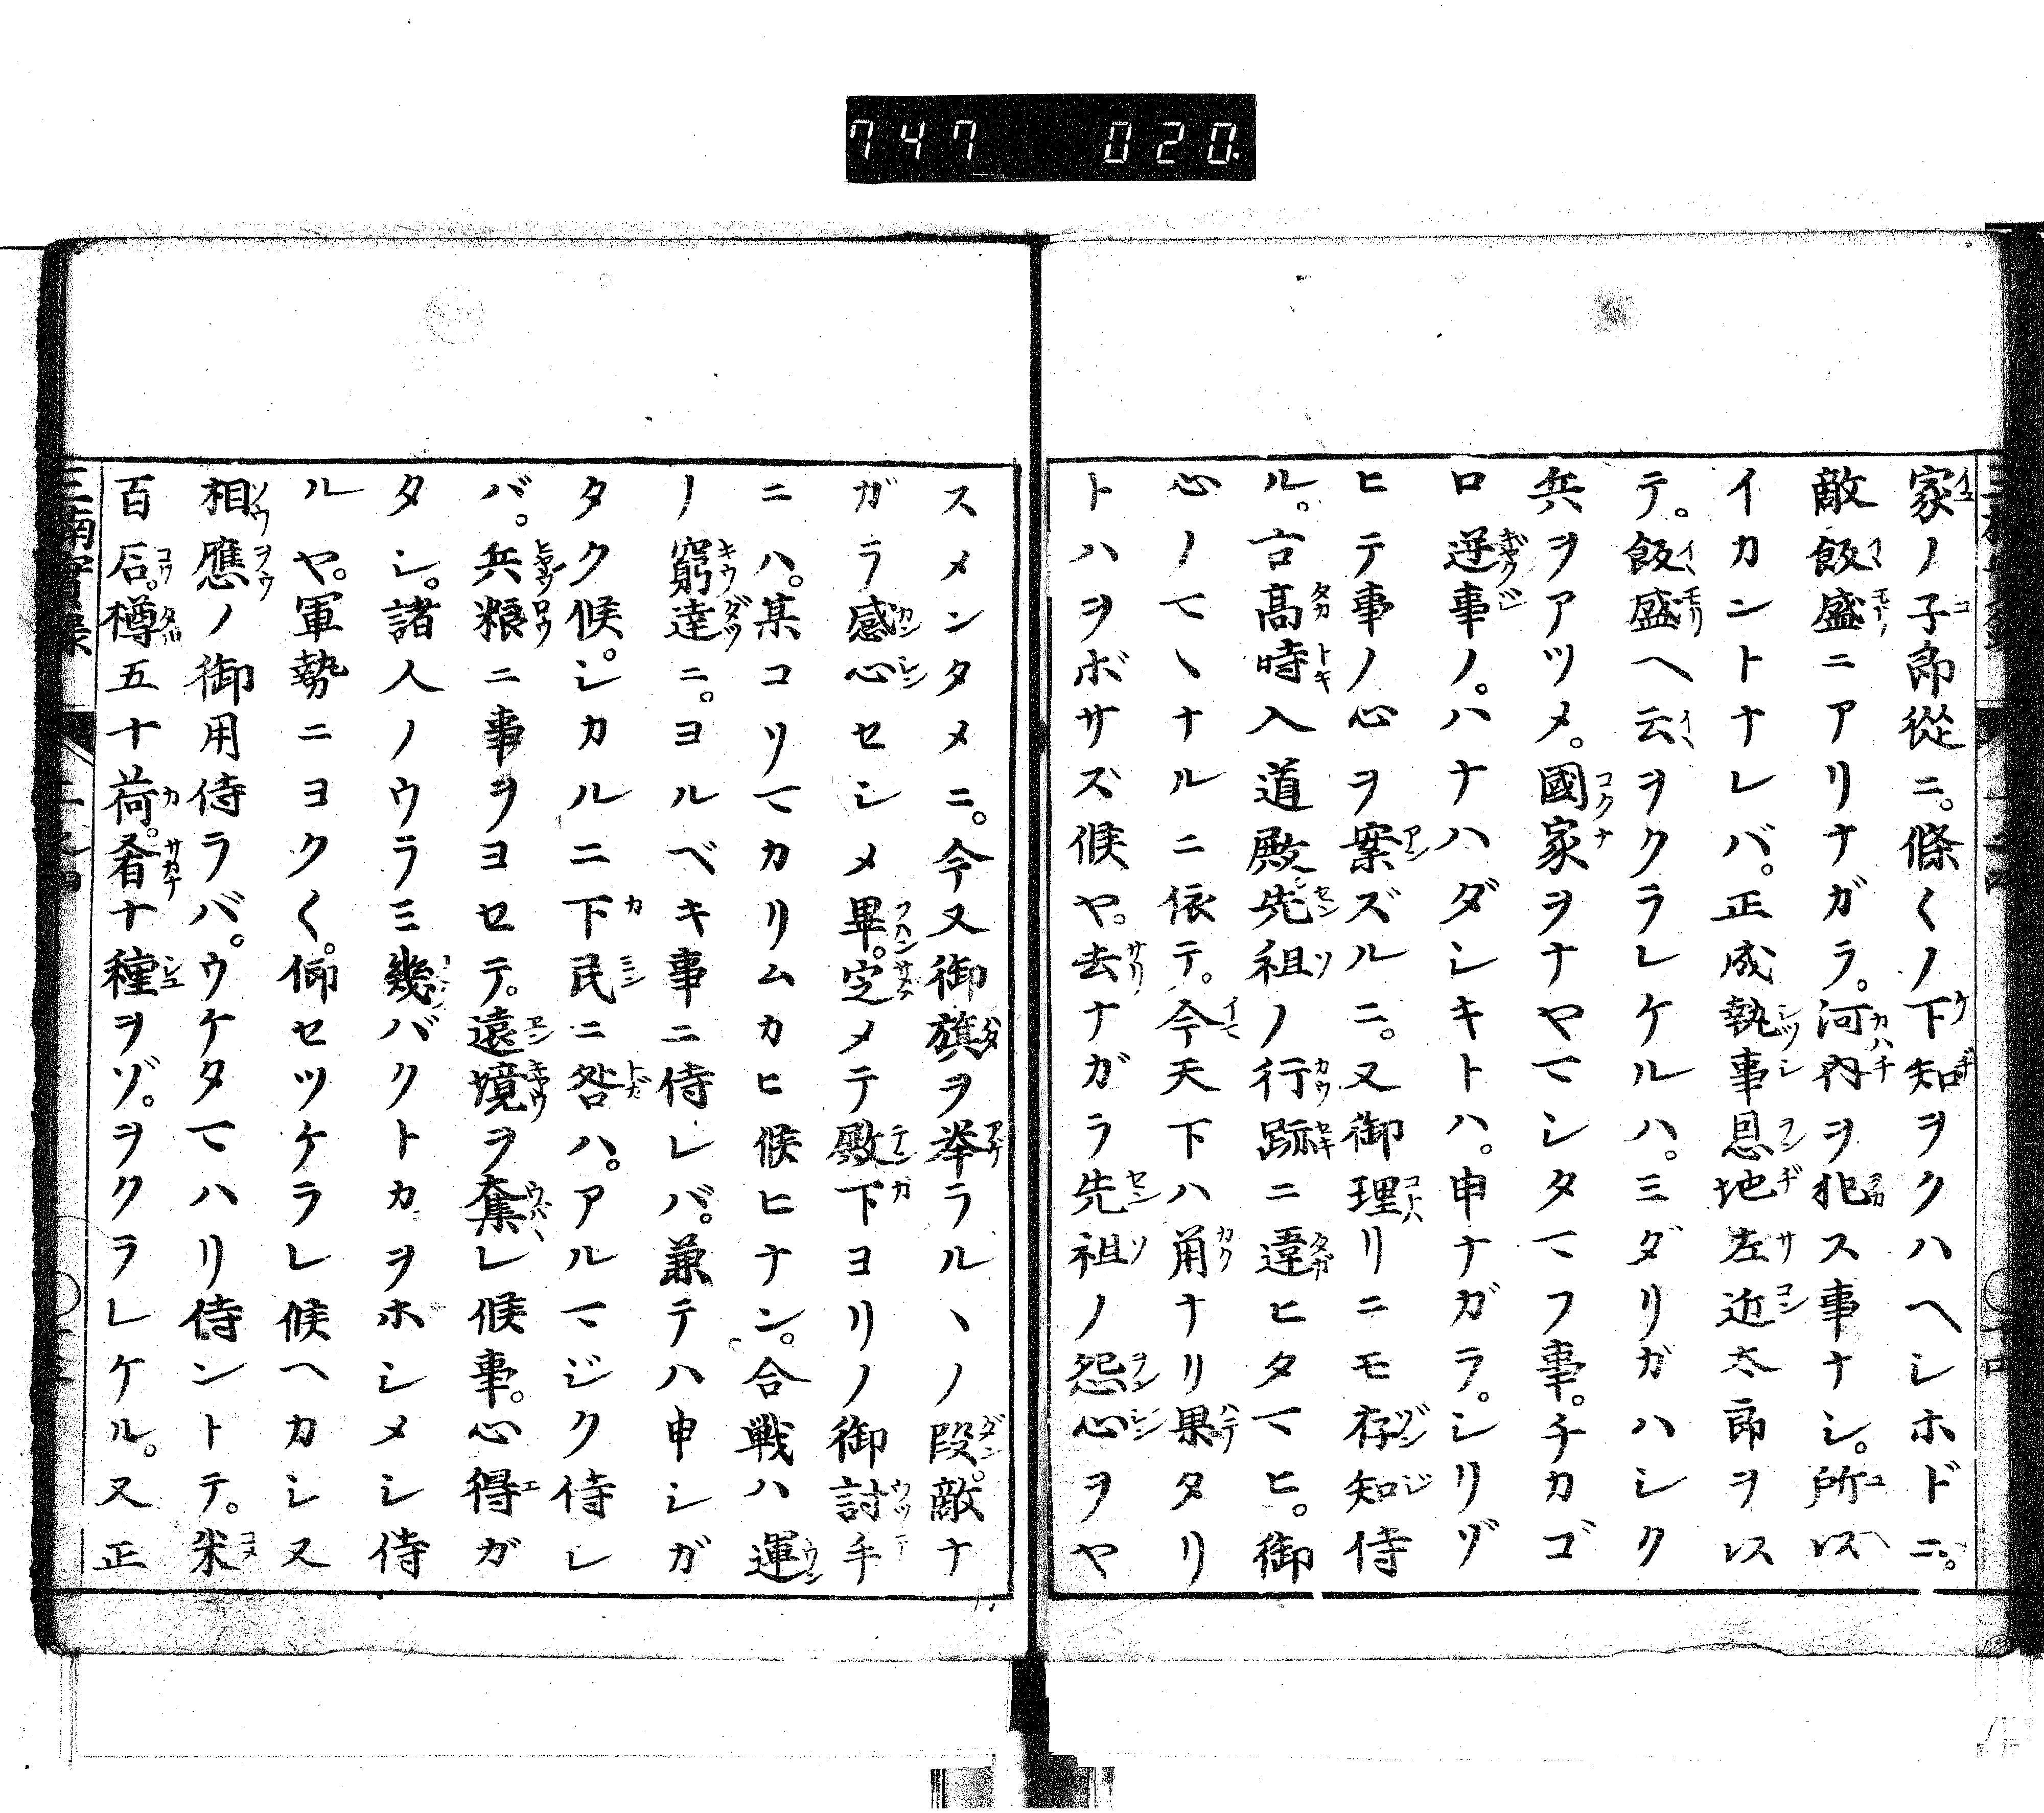 747 020.
家ノ子郎從ニ。條〱ノ下知ヲクハヘシホドニ。
敵飯盛ニアリナガラ。河内ヲ犯ス事ナシ。所以
イカントナレバ。正成執事恩地左近太郎ヲ以
テ。飯盛ヘ云ヲクラレケルハ。ミダリガハシク
兵ヲアツメ。國家ヲナヤマシタマフ事。チカゴ
ロ逆事ノ。ハナハダシキトハ。申ナガラ。シリゾ
ヒテ事ノ心ヲ案ズルニ。又御理リニモ存知侍
ル。古高時入道殿。先祖ノ行跡ニ違ヒタマヒ。御
心ノマヽナルニ依テ。今天下ハ角ナリ果タリ
トハヲボサズ候ヤ。去ナガラ先祖ノ怨心ヲヤ
スメンタメニ。今又御旗ヲ挙ラルヽノ段。敵ナ
ガラ感心セシメ畢。定メテ殿下ヨリノ御討手
ニハ。某コソマカリムカヒ候ヒナン。合戦ハ運
ノ窮達ニ。ヨルベキ事ニ侍レバ。兼テハ申シガ
タク候。シカルニ下民ニ咎ハ。アルマジク侍レ
バ。兵粮ニ事ヲヨセテ。遠境ヲ奪レ候事。心得ガ
タシ。諸人ノウラミ幾バクトカヲホシメシ侍
ルヤ。軍勢ニヨク〱。仰セツケラレ候ヘカシ又
相應ノ御用侍ラバ。ウケタマハリ侍ントテ。米
百石。樽五十荷。肴十種ヲゾ。ヲクラレケル。又正